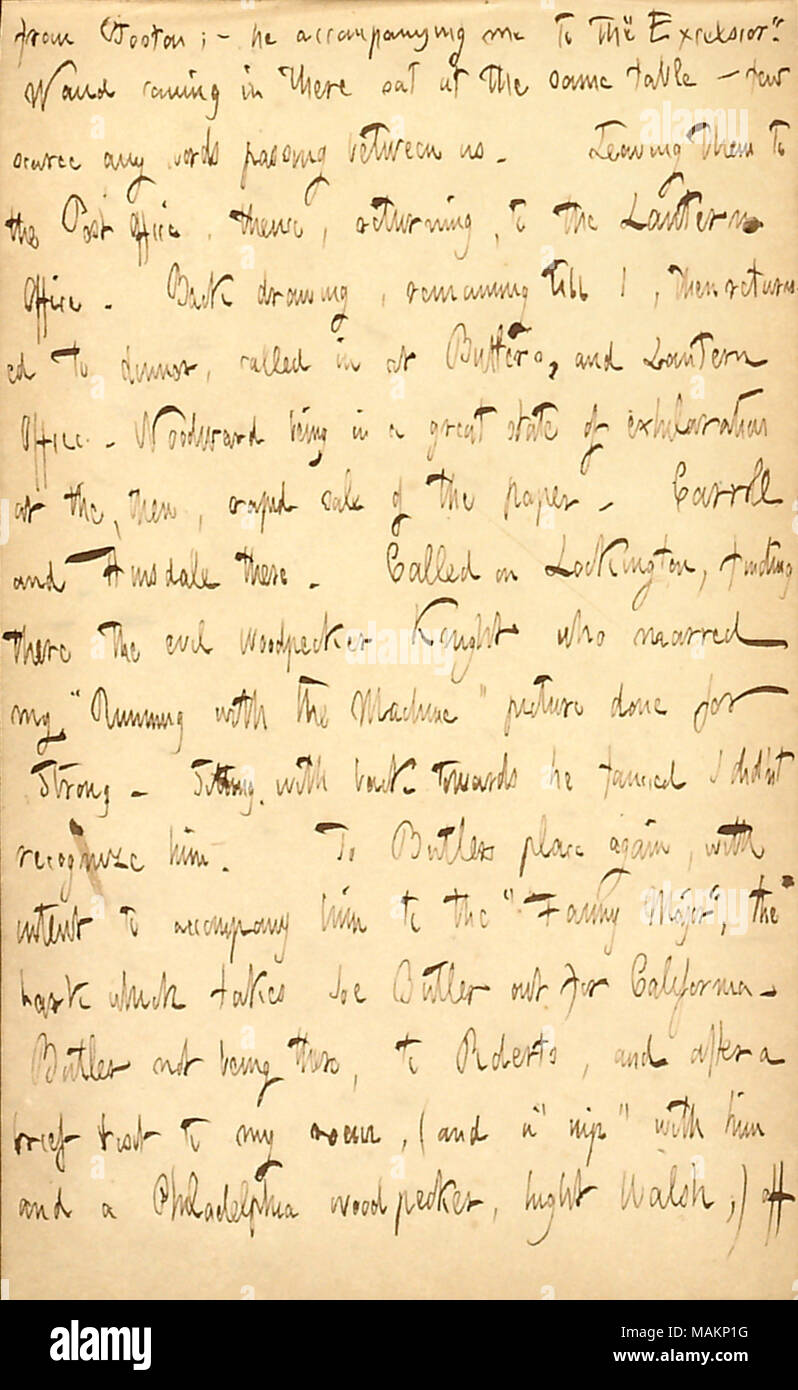 from Wooton ; – he accompanying me to the "Excelsior."
Waud coming in there sat at the same table – few
scarce any words passing between us – Leaving them to
the Post Office, thence, returning, to the Lantern
Office – Back drawing, remaining till 1, then return-
ed to dinner, called in at Butlers, and Lantern
Office – Woodward being in a great state of exhilaration
at the, then, rapid sale of the paper – Carroll
and Hinsdale there – Called on Lockington, finding
there the evil woodpecker Knight who marred
my "Running with the Machine" picture done for
Strong – Sitting with back towards he fancied I didn't
recognize him. To Butlers place again, with
intent to accompany him to the "Fanny Major", the
bark which takes Joe Butler out for California –
Butler not being there, to Roberts, and after a
brief visit to my room, (and a "nip" with him
and a Philadelphia woodpecker, hight Walsh,) off
alamy
alamy
Image ID: MAKP1G
www.alamy.com